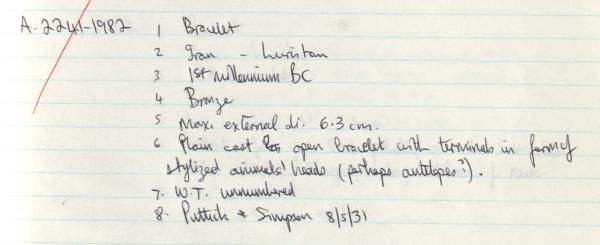 A.2241-1982 1 Bracelet
2 Iran - Luristan
3 1st millennium BC
4 Bronze
5 Max. external di. 6.3 cm.
6 Plain cast open bracelet with terminals in form of
stylized animals' heads (perhaps antelopes?).
7. W.T. unnumbered
8. Puttick & Simpson 8/5/31